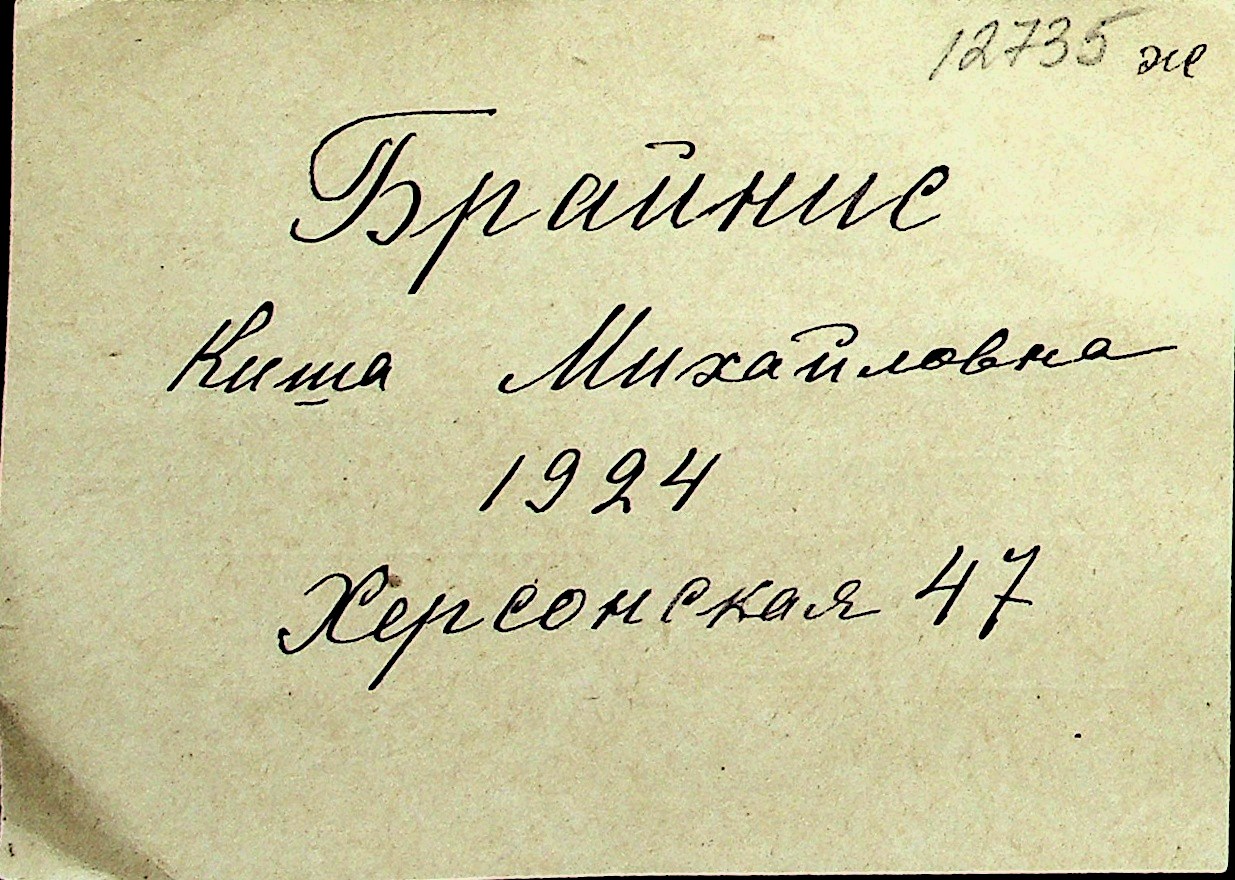 12735 ж
Брайнис
Киша Михайловна
1924
Херсонская 47